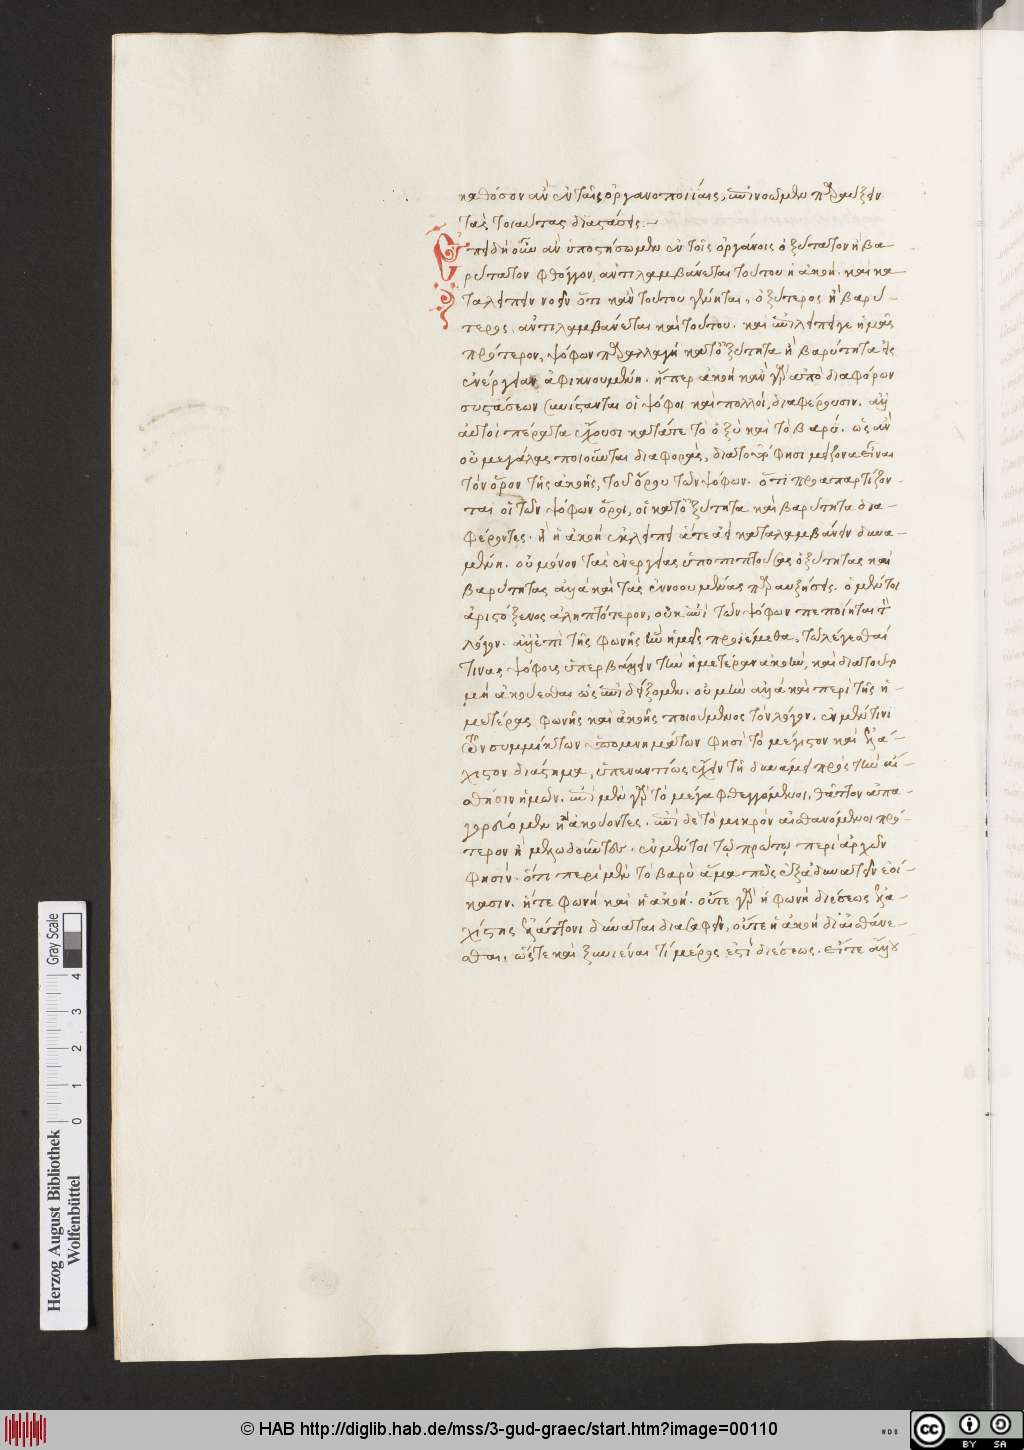 καθόσον ἂν ἐν ταῖς ὀργανοποιΐαις, ἐπινοῶμεν παραύξειν
τὰς τοιαύτας διαστάσεις.
Ἐπειδὴ οὖν ἂν ὑποστήσωμεν ἐν τοῖς ὀργάνοις ὀξύτατον ἢ βα
ρύτατον φθόγγον, ἀντιλαμβάνεται τούτου ἡ ἀκοή. καὶ κα
ταλείπειν νοεῖν ὅτι κἂν τούτου γένηται, ὀξύτερος ἢ βαρύ-
τερος, ἀντιλαμβάνεται καὶ τούτου. καὶ ἐπιλείπει γε ἡμᾶς
πρότερον, ψόφων παραλλαγὴ κατ' ὀξύτητα ἢ βαρύτητα εἰς
ἐνέργειαν ἀφικνουμένη. ἤπερ ἀκοὴ κἂν γὰρ ἀπὸ διαφόρων
συστάσεων οἱ ψόφοι καὶ πολλοὶ, διαφέρουσιν. ἀλλ'
αὐτοὶ πέρατα ἔχουσι κατά τε τὸ ὀξὺ καὶ τὸ βαρύ. ὡς ἂν
οὐ μεγάλας ποιοῦνται διαφοράς, διὰ τοῦτό φησι μείζονα εἶναι
τὸν ὅρον τῆς ἀκοῆς, τοῦ ὅρου τῶν ψόφων. ὅτι προαπαρτίζον-
ται οἱ τῶν ψόφων ὅροι, οἱ κατ' ὀξύτητα καὶ βαρύτητα δια-
φέροντες. ἢ ἡ ἀκοὴ ἐκλείπει ἅτε ἀεὶ καταλαμβάνειν δυνα-
μένη. οὐ μόνον τὰς ἐνεργείας ὑποπιπτούσας ὀξύτητας καὶ
βαρύτητας ἀλλὰ καὶ τὰς ἐννοουμένας παραυξήσεις. ὁ μέντοι
ἀριστόξενος ἀληπτότερον, οὐκ ἐπὶ τῶν ψόφων πεποίηται τὸν
λόγον. ἀλλ' ἐπὶ τῆς φωνῆς ἣν ἡμεῖς προϊέμεθα, τῷ λέγεσθαί
τινας ψόφους ὑπερβάλλειν τὴν ἡμετέραν ἀκοὴν, καὶ διὰ τοῦτο
μὴ ἀκούεσθαι ὡς ἐπιδείξομεν. οὐ μὴν ἀλλὰ καὶ περὶ τῆς ἡ-
μετέρας φωνῆς καὶ ἀκοῆς ποιούμενος τὸν λόγον. ἐν μέν τινι
τῶν συμμίκτων ὑπομνημάτων φησὶ τὸ μέγιστον καὶ ἐλά-
χιστον διάστημα, ὑπεναντίως ἔχειν τῇ δυνάμει πρὸς τὴν αἴ-
σθησιν ἡμῶν. ἐπὶ μὲν γὰρ τὸ μέγα φθεγγόμενοι, θᾶττον ἀπα-
γορεύομεν ἢ ἀκούοντες. ἐπὶ δὲ τὸ μικρὸν αἰσθανόμενοι πρό-
τερον ἢ μελῳδοῦντες. ἐν μέντοι τῷ πρώτῳ περὶ ἀρχῶν
φησίν. ὅτι περὶ μὲν τὸ βαρὺ ἅμα πως ἐξαδυνατεῖν ἐοί-
κασιν. ἥ τε φωνὴ καὶ ἡ ἀκοή. οὔτε γὰρ ἡ φωνὴ διέσεως ἐλα-
χίστης ἐλάττονι δύναται διασαφεῖν, οὔτε ἡ ἀκοὴ διαισθάνε-
σθαι. ὥστε καὶ ξυνιέναι τί μέρος ἐστὶ διέσεως. εἴτε ἄλλου
Herzog August Bibliothek
Wolfenbüttel
0 1 2 3 4
Gray Scale
© HAB http://diglib.hab.de/mss/3-gud-graec/start.htm?image=00110
WDB
cc BY SA